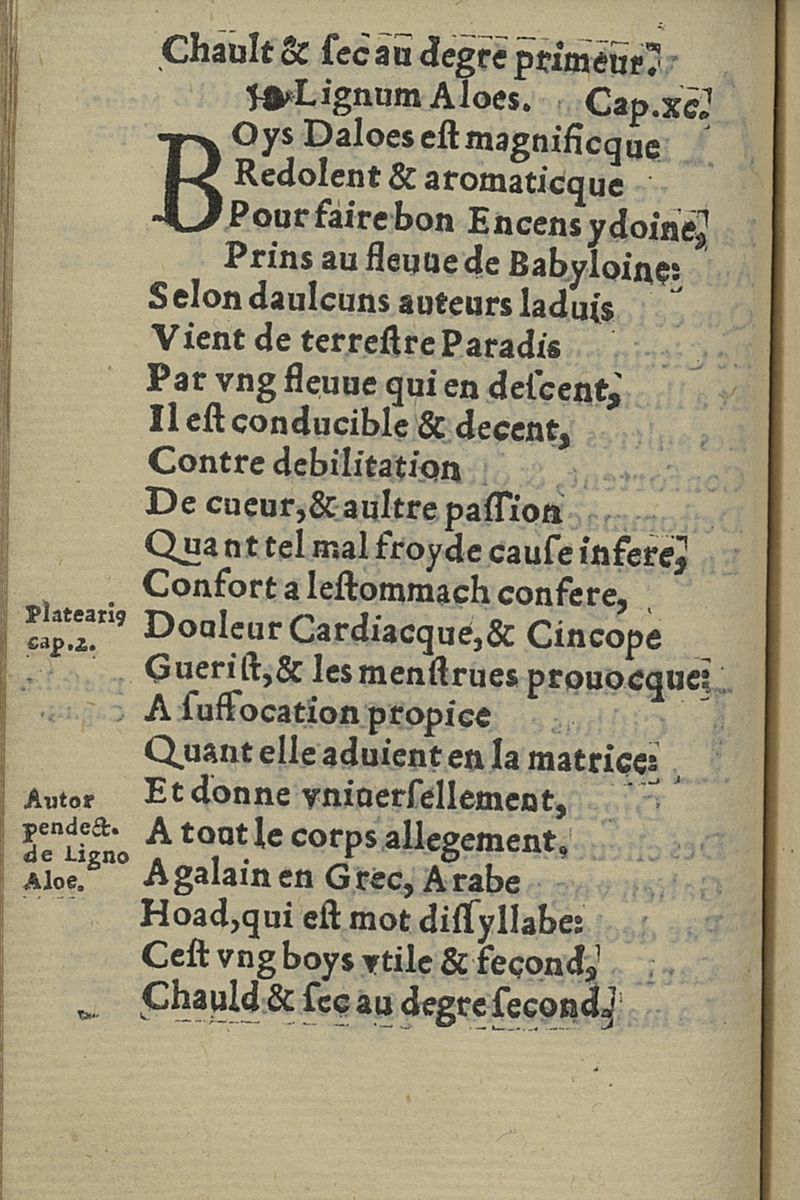 Chault & ſec au degre primeur.
❧Lignum Aloes. Cap.xc.
BOys Daloes eſt magnificque
Redolent & aromaticque
Pour faire bon Encens ydoine,
Prins au fleuue de Babyloine:
Selon daulcuns auteurs laduis
Vient de terreſtre Paradis
Par vng fleuue qui en deſcent,
Il eſt conducible & decent,
Contre debilitation
De cueur,& aultre paſſion
Quant tel mal froyde cauſe infere,
Confort a leſtommach confere,
Plateariꝯ
cap.2.
Douleur Cardiacque,& Cincope
Gueriſt,& les menſtrues prouocque:
A ſuffocation propice
Quant elle aduient en la matrice:
Et donne vniuerſellement,
Autor
pendect.
de Ligno
Aloe.
A tout le corps allegement.
Agalain en Grec, Arabe
Hoad,qui eſt mot diſſyllabe:
Ceſt vng boys vtile & fecond,
Chauld & ſec au degre ſecond.